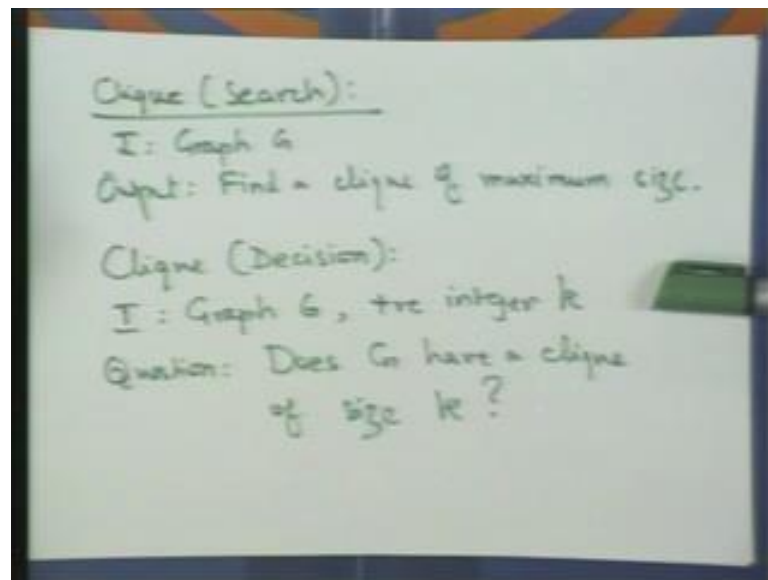 Clique (Search):
I: Graph G
Output: Find a clique of maximum size.
Clique (Decision):
I: Graph G, +ve integer k
Question: Does G have a clique
of size k?